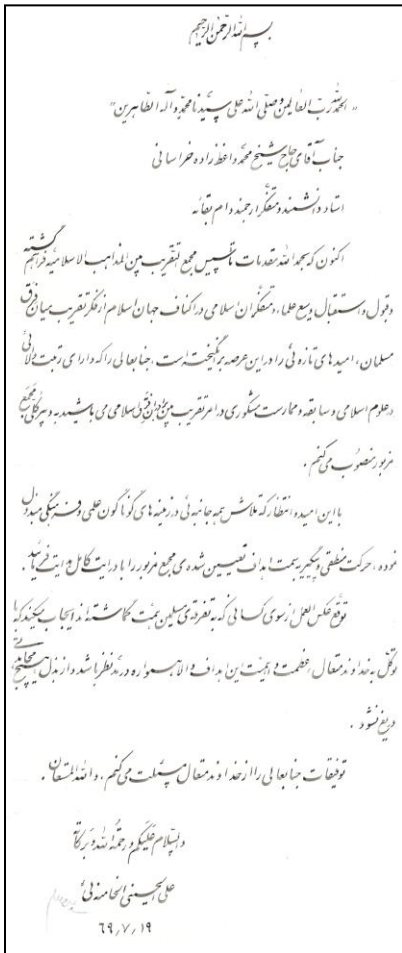 بسم الله الرحمن الرحیم
"الحمد لله رب العالمین وصلی الله علی سیدنا محمد وآله الطاهرین"
جناب آقای حاج شیخ محمد واعظ زاده خراسانی
استاد دانشمند و متفکر ارجمند دام بقائه
اکنون که بحمد الله مقدمات تأسیس مجمع التقریب بین المذاهب الاسلامیه فراهم گشته
و قبول و استقبال وسیع علماء و متفکران اسلامی در اکناف جهان اسلام از فکر تقریب میان فرق
مسلمان، امیدهای تازه ئی را در این عرصه برانگیخته است، جنابعالی را که دارای رتبت والائی
در علوم اسلامی و سابقه و ممارست مشکوری در امر تقریب بین فرق اسلامی می باشید به دبیرکلی مجمع
مزبور منصوب می کنم.
با این امید و انتظار که تلاش همه جانبه ئی در زمینه های گوناگون علمی و فرهنگی مبذول
نموده، حرکت منطقی و پیگیر به سمت اهداف تعیین شده ی مجمع مزبور را با درایت کامل هدایت فرمائید.
توقع عکس العمل از سوی کسانی که به تفرقه ی مسلمین همت گماشته اند ایجاب میکند که با
توکل به خداوند متعال، عظمت و اهمیت این اهداف والا همواره در مد نظر باشد و از بذل هیچ مجاهدتی
دریغ نشود.
توفیقات جنابعالی را از خداوند متعال مسئلت می کنم. والله المستعان.
والسلام علیکم ورحمة الله وبرکاته
علی الحسینی الخامنه ئی
۶۹٫۷٫۱۹